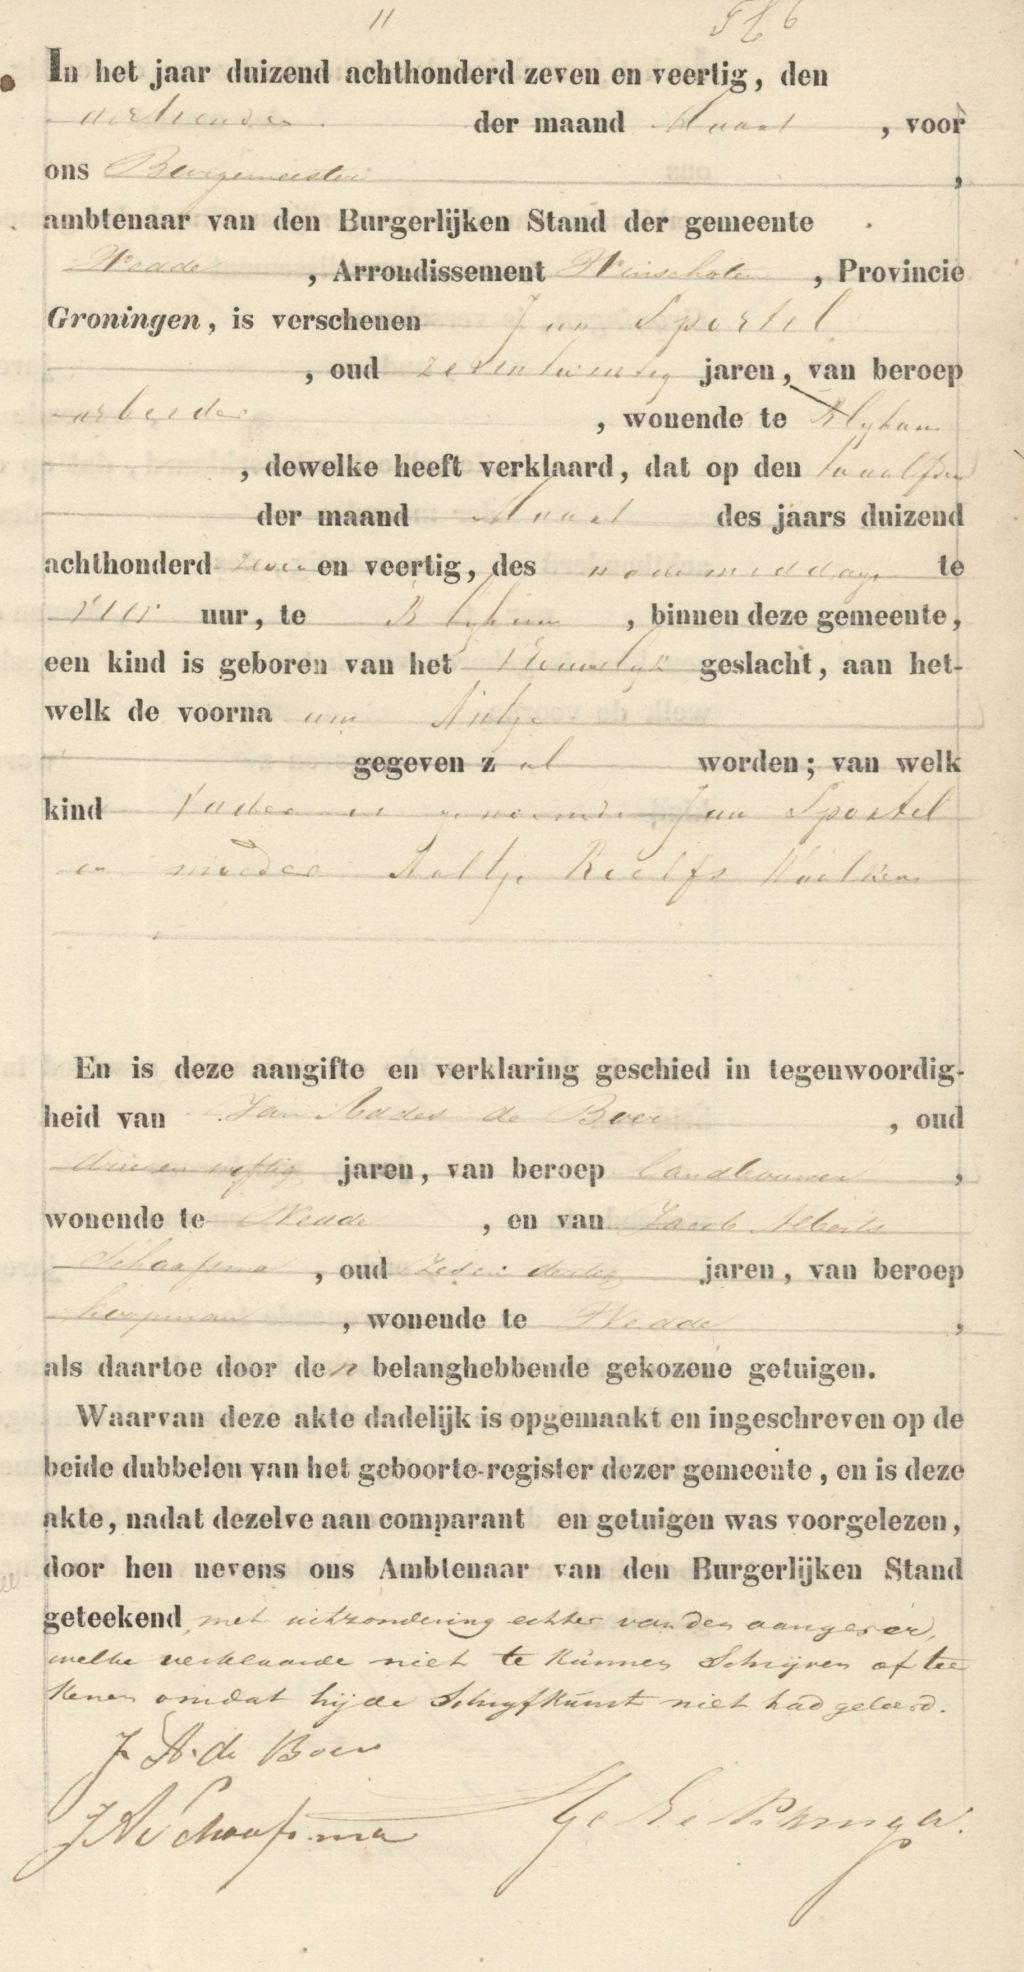 11
In het jaar duizend achthonderd zeven en veertig, den
dertienden der maand Maart, voor
ons Burgemeester,
ambtenaar van den Burgerlijken Stand der gemeente
Wedde, Arrondissement Winschoten, Provincie
Groningen, is verschenen Jan Sportel
, oud zeventwintig jaren, van beroep
arbeider, wonende te Blyham
, dewelke heeft verklaard, dat op den twaalfden
der maand Maart des jaars duizend
achthonderd zeven en veertig, des nademiddags te
vier uur, te Blyham, binnen deze gemeente,
een kind is geboren van het vrouwelyk geslacht, aan het-
welk de voorna am Antje
gegeven zal worden; van welk
kind vader is genoemde Jan Sportel
en moeder Aaltje Roelfs Haalken
En is deze aangifte en verklaring geschied in tegenwoordig-
heid van Jan Addes de Boer, oud
drie en vyftig jaren, van beroep landbouwer,
wonende te Wedde, en van Jacob Alberts
Schaafsma, oud zes en dertig jaren, van beroep
koopman, wonende te Wedde,
als daartoe door den belanghebbende gekozene getuigen.
Waarvan deze akte dadelijk is opgemaakt en ingeschreven op de
beide dubbelen van het geboorte-register dezer gemeente, en is deze
akte, nadat dezelve aan comparant en getuigen was voorgelezen,
door hen nevens ons Ambtenaar van den Burgerlijken Stand
geteekend, met uitzondering echter van den aangever,
welke verklaarde niet te kunnen Schrijven of tee
kenen omdat hij de Schryfkunst niet had geleerd.
J A de Boer
J A Schaafsma